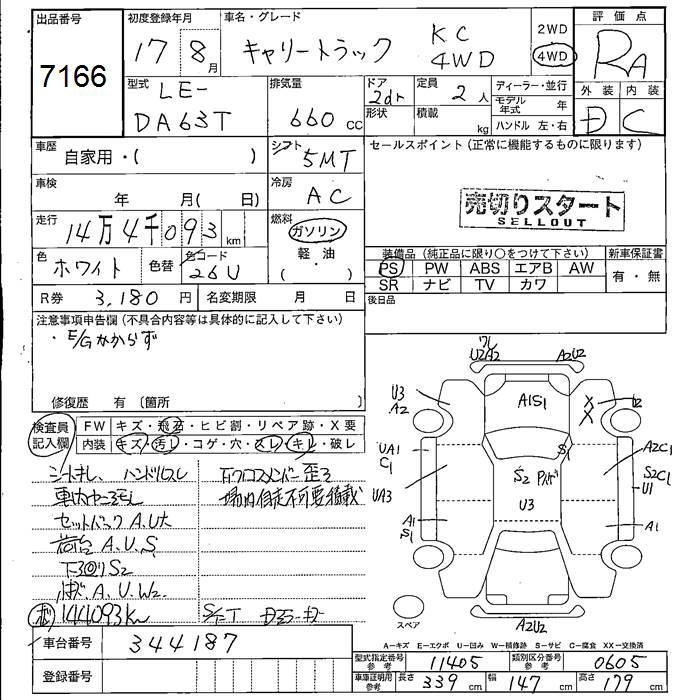 出品番号
7166
初度登録年月
17 8月
車名・グレード
キャリートラック KC 4WD
2WD
4WD
評価点
RA
外装 内装
D C
型式
LE-
DA63T
排気量
660 cc
ドア
2dr
形状
定員
2人
積載
kg
ディーラー・並行
モデル年式 年
ハンドル 左・右
車歴
自家用・( )
シフト
5MT
セールスポイント(正常に機能するものに限ります)
売切りスタート
SELLOUT
車検
年 月( 日)
冷房
AC
走行
14万4千093km
燃料
ガソリン
軽・油
( ・ )
色
ホワイト
色替
色コード
26U
装備品(純正品に限り〇をつけて下さい)
新車保証書
PS PW ABS エアB AW
SR ナビ TV カワ
有・無
R券 3,180円
名変期限 月 日
後日品
注意事項申告欄(不具合内容等は具体的に記入して下さい)
・E/Gかからず
修復歴 有〔箇所
検査員記入欄
FW キズ・飛石・ヒビ割・リペア跡・X要
内装 キズ・汚レ・コゲ・穴・スレ・キレ・破レ
シートキレ、ハンドルスレ
下クロスメンバー歪ミ
場内自走不可要積載
セットバック A.U大
荷台 A.U.S
下回りS2
A.U.W2
144093km
車台番号 344187
登録番号
U2A2
A2U2
U3
A2
A1S1
UA1
C1
UA3
A1
S1
S
S2
U3
A2C1
S2C1
U1
A1
スペア
A2U2
A-キズ E-エクボ U-凹み W-補修跡 S-サビ C-腐食 XX-交換済
型式指定番号 参考 11405
類別区分番号 参考 0605
車庫証明用 参考 長さ 339cm 幅 147cm 高さ 179cm